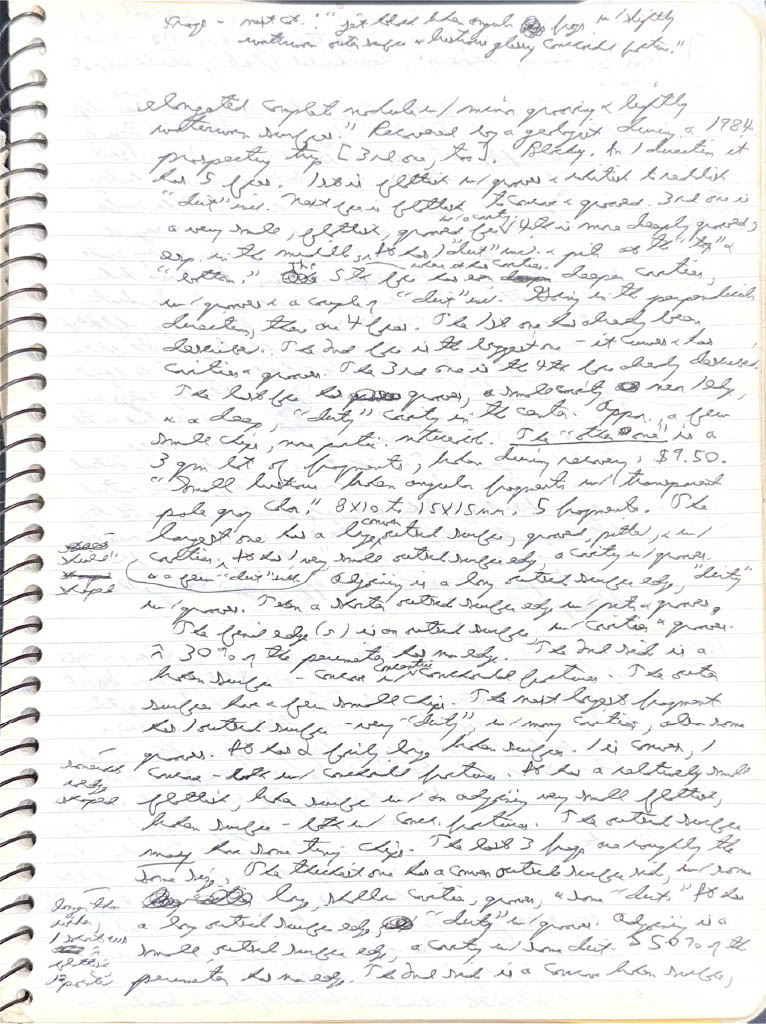 frags - next cat. : "jet black broken angular frags w/ slightly
waterworn outer surface & lustrous glassy conchoidal fracture."
elongated complete nodule w/ minor grooving & lightly
waterworn surface." Recovered by a geologist during a 1984
prospecting trip [3rd one, too]. Blocky. In 1 direction it
has 5 faces. 1st is flattish w/ grooves & whitish to reddish
"dirt" incl. Next face is flattish to concave & grooved. 3rd one is
a very small, flattish, grooved face w/ a cavity. 4th is more deeply grooved,
esp. in the middle. It has 1 "dirt" incl. & pits at the "top" &
"bottom." The 5th face has deeper cavities,
w/ grooves & a couple of "dirt" incl. Going in the perpendicular
direction, there are 4 faces. The 1st one has already been
described. The 2nd face is the biggest one - it curves & has
cavities & grooves. The 3rd one is the 4th face already described.
The last face has grooves, a small cavity near 1 edge,
& a deep, "dirty" cavity in the center. Appar. a few
small chips, none partic. noticeable. The "other one" is a
3 gm lot of fragments, broken during recovery, $9.50.
"Small lustrous broken angular fragments w/ transparent
pale gray color." 8x10 to 15x15mm. 5 fragments. The
largest one has a large convex outside surface, grooved, pitted, & w/
cavities. It has 1 very small outside surface edge, a cavity w/ grooves
& a few "dirt" incl. Adjoining is a long outside surface edge, "dirty"
w/ grooves. Then a shorter outside surface edge w/ pits & grooves.
The final edge(s) is an outside surface, w/ cavities & grooves.
≈ 30% of the perimeter has no edge. The 2nd side is a
broken surface - concave w/ concentric conchoidal fractures. The outer
surfaces have a few small chips. The next largest fragment
has 1 outside surface - very "dirty", w/ many cavities, also some
grooves. It has 2 fairly large broken surfaces. 1 is convex, 1
concave - both w/ conchoidal fractures. It has a relatively small
flattish, broken surface w/ an adjoining very small flattish,
broken surface - both w/ conch. fractures. The outside surface
may have some tiny chips. The last 3 frags are roughly the
same size. The thickest one has a convex outside surface side, w/ some
large, shallow cavities, grooves, & some "dirt." It has
a long outside surface edge, "dirty" w/ grooves. Adjoining is a
small outside surface edge, a cavity w/ some dirt. > 50% of the
perimeter has no edge. The 2nd side is a concave broken surface,
"shield"
shaped
somewhat
wedge
shaped
longer than
wide,
1 short end